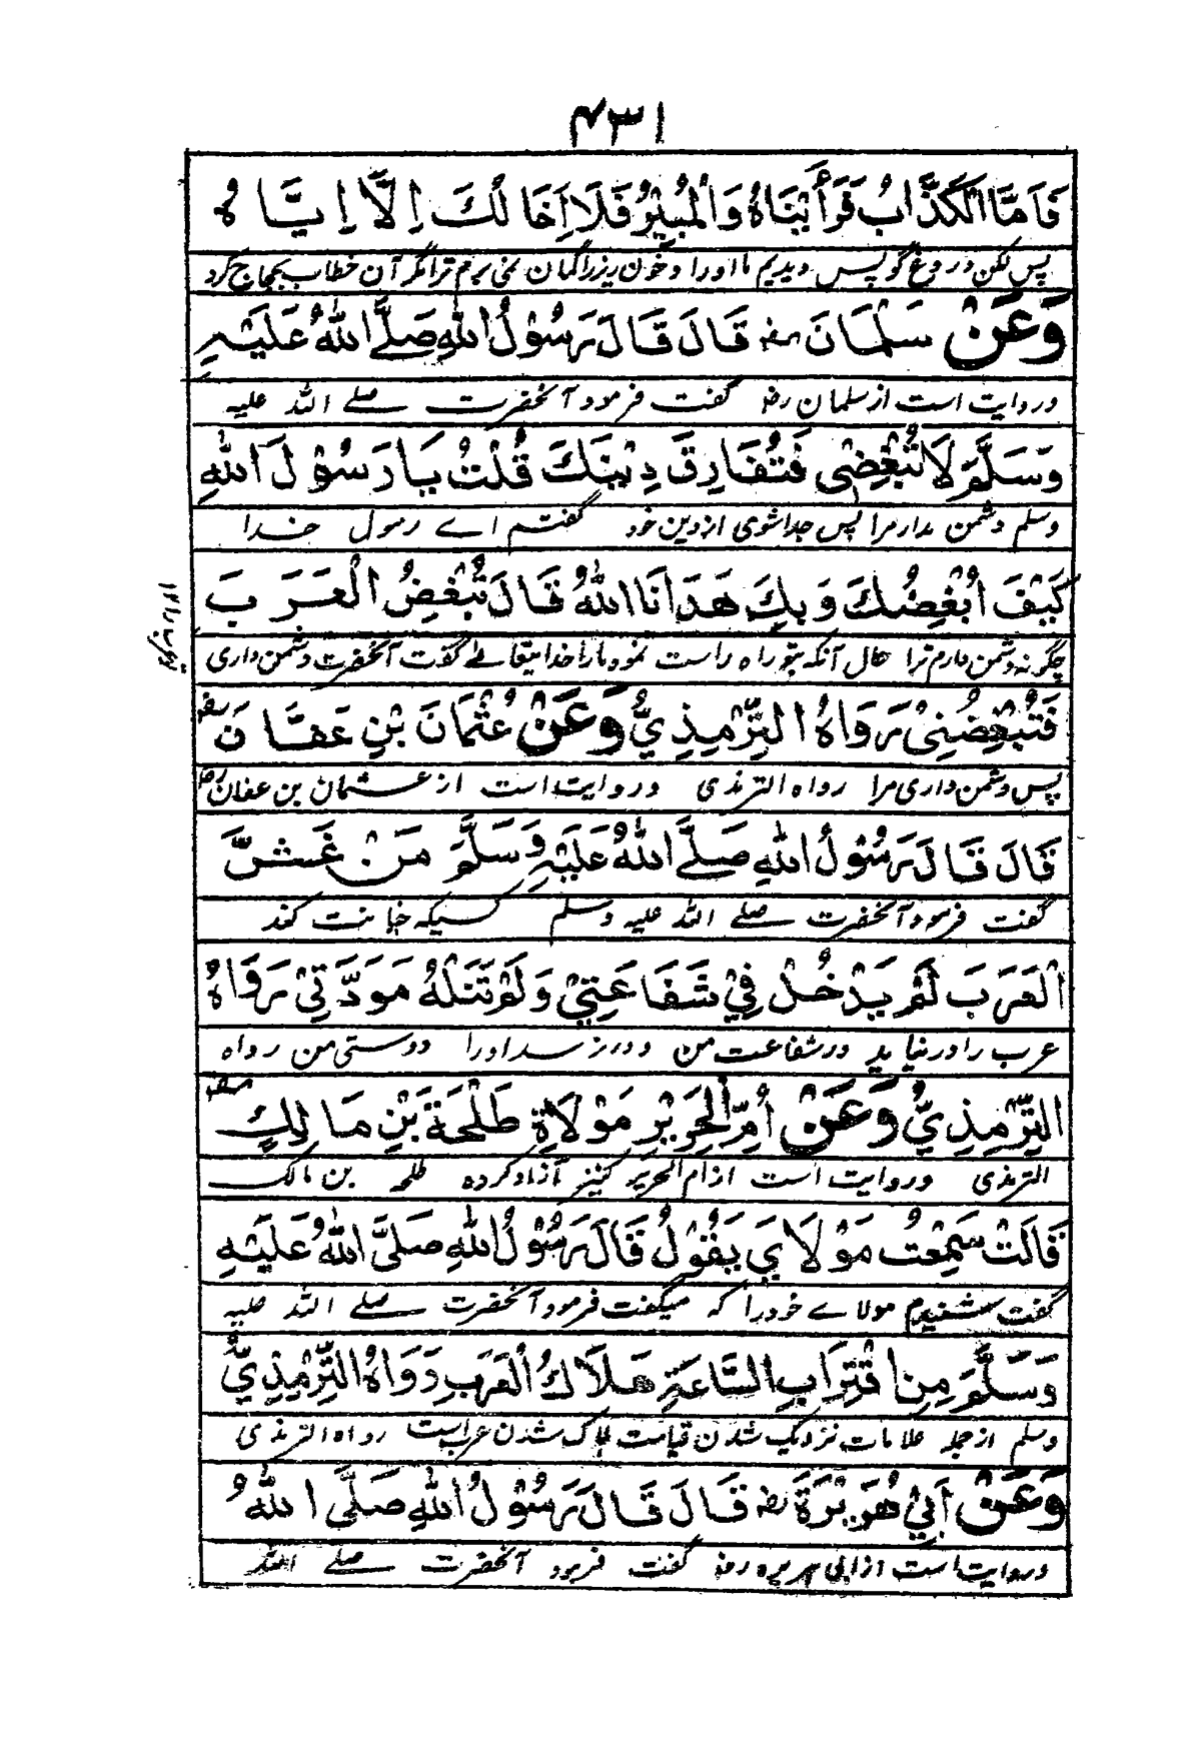 ۴۳۱
فَاَمَّا الْكَذَّابُ فَرَأَيْنَاهُ وَالْمُبِيْرُ فَلَا اِخَالُكَ اِلَّا اِيَّاهُ
پس لیکن دروغ گو پس دیدیم ما اورا و خون ریز را گمان نمی برم ترا مگر آن خطاب بحجاج کرد
وَعَنْ سَلْمَانَ رض قَالَ قَالَ رَسُوْلُ اللهِ صَلَّے اللهُ عَلَيْہِ
و روایت است از سلمان رض گفت فرمود آنحضرت صلے اللہ علیہ
وَسَلَّمَ لَا تُبْغِضْنِى فَتُفَارِقَ دِيْنَكَ قُلْتُ يَا رَسُوْلَ اللهِ
وسلم دشمن مدار مرا پس جدا شوی از دین خود گفتم اے رسول خدا
كَيْفَ اُبْغِضُكَ وَبِكَ هَدَانَا اللهُ قَالَ تُبْغِضُ الْعَرَبَ
چگونه دشمن دارم ترا حال آنکه بتو راه راست نمود مارا خدا یتعالے گفت آنحضرت دشمن داری
فَتُبْغِضُنِىْ رَوَاهُ التِّرْمِذِيُّ وَعَنْ عُثْمَانَ بْنِ عَفَّانَ رض
پس دشمن داری مرا رواه الترمذی و روایت است از عثمان بن عفان رض
قَالَ قَالَ رَسُوْلُ اللهِ صَلَّے اللهُ عَلَيْہِ وَسَلَّمَ مَنْ غَشَّ
گفت فرمود آنحضرت صلے اللہ علیہ وسلم کسیکہ خیانت کند
الْعَرَبَ لَمْ يَدْخُلْ فِيْ شَفَاعَتِيْ وَلَمْ تَنَلْهُ مَوَدَّتِيْ رَوَاهُ
عرب را در نیاید در شفاعت من و نرسد اورا دوستی من رواه
التِّرْمِذِيُّ وَعَنْ اُمِّ الْحَرِيْرِ مَوْلَاةِ طَلْحَةَ بْنِ مَالِكٍ رض
الترمذی و روایت است از ام الحریر کنیز آزاد کرده طلحہ بن مالک
قَالَتْ سَمِعْتُ مَوْلَايَ يَقُوْلُ قَالَ رَسُوْلُ اللهِ صَلَّى اللهُ عَلَيْہِ
گفت شنیدم مولاے خود را که میگفت فرمود آنحضرت صلے اللہ علیہ
وَسَلَّمَ مِنِ اقْتِرَابِ السَّاعَةِ هَلَاكُ الْعَرَبِ رَوَاهُ التِّرْمِذِيُّ
وسلم از جملہ علامات نزدیک شدن قیامت ہلاک شدن عرب است رواه الترمذی
وَعَنْ اَبِيْ هُرَيْرَةَ رض قَالَ قَالَ رَسُوْلُ اللهِ صَلَّى اللهُ
و روایت است از ابی ہریره رض گفت فرمود آنحضرت صلے اللہ